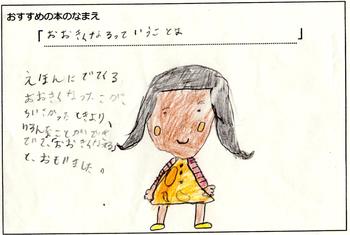 おすすめの本のなまえ
「おおきくなるっていうことは」
えほんにでてくる
おおきくなったこが、
ちいさかったときより、
いろんなことができ
て、おおきくなる
と、おもいました。